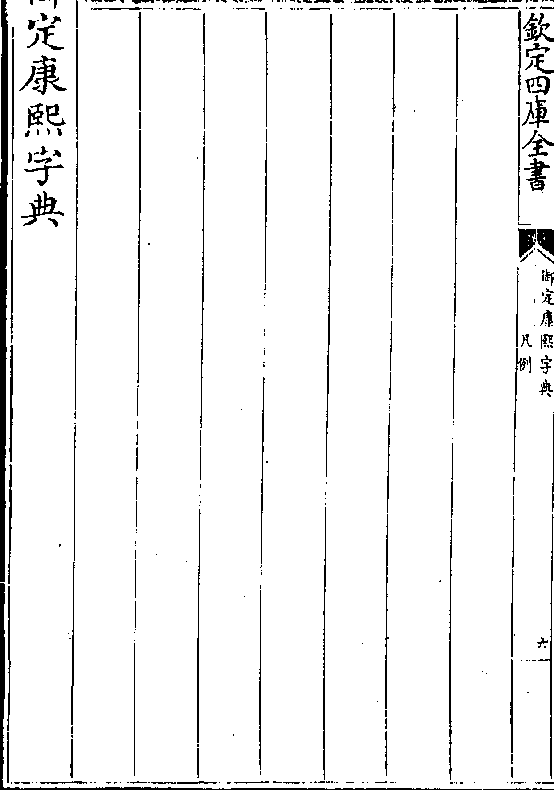 欽定四庫全書
御定康熙字典
凡例
六
御定康熙字典